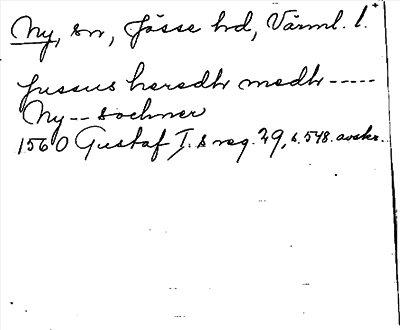 Ny, sn, Jösse hd, Värml. l.
Jussus haredh medh -----
Ny -- sochner
1560 Gustaf I:s reg. 29, s. 548. avskr.